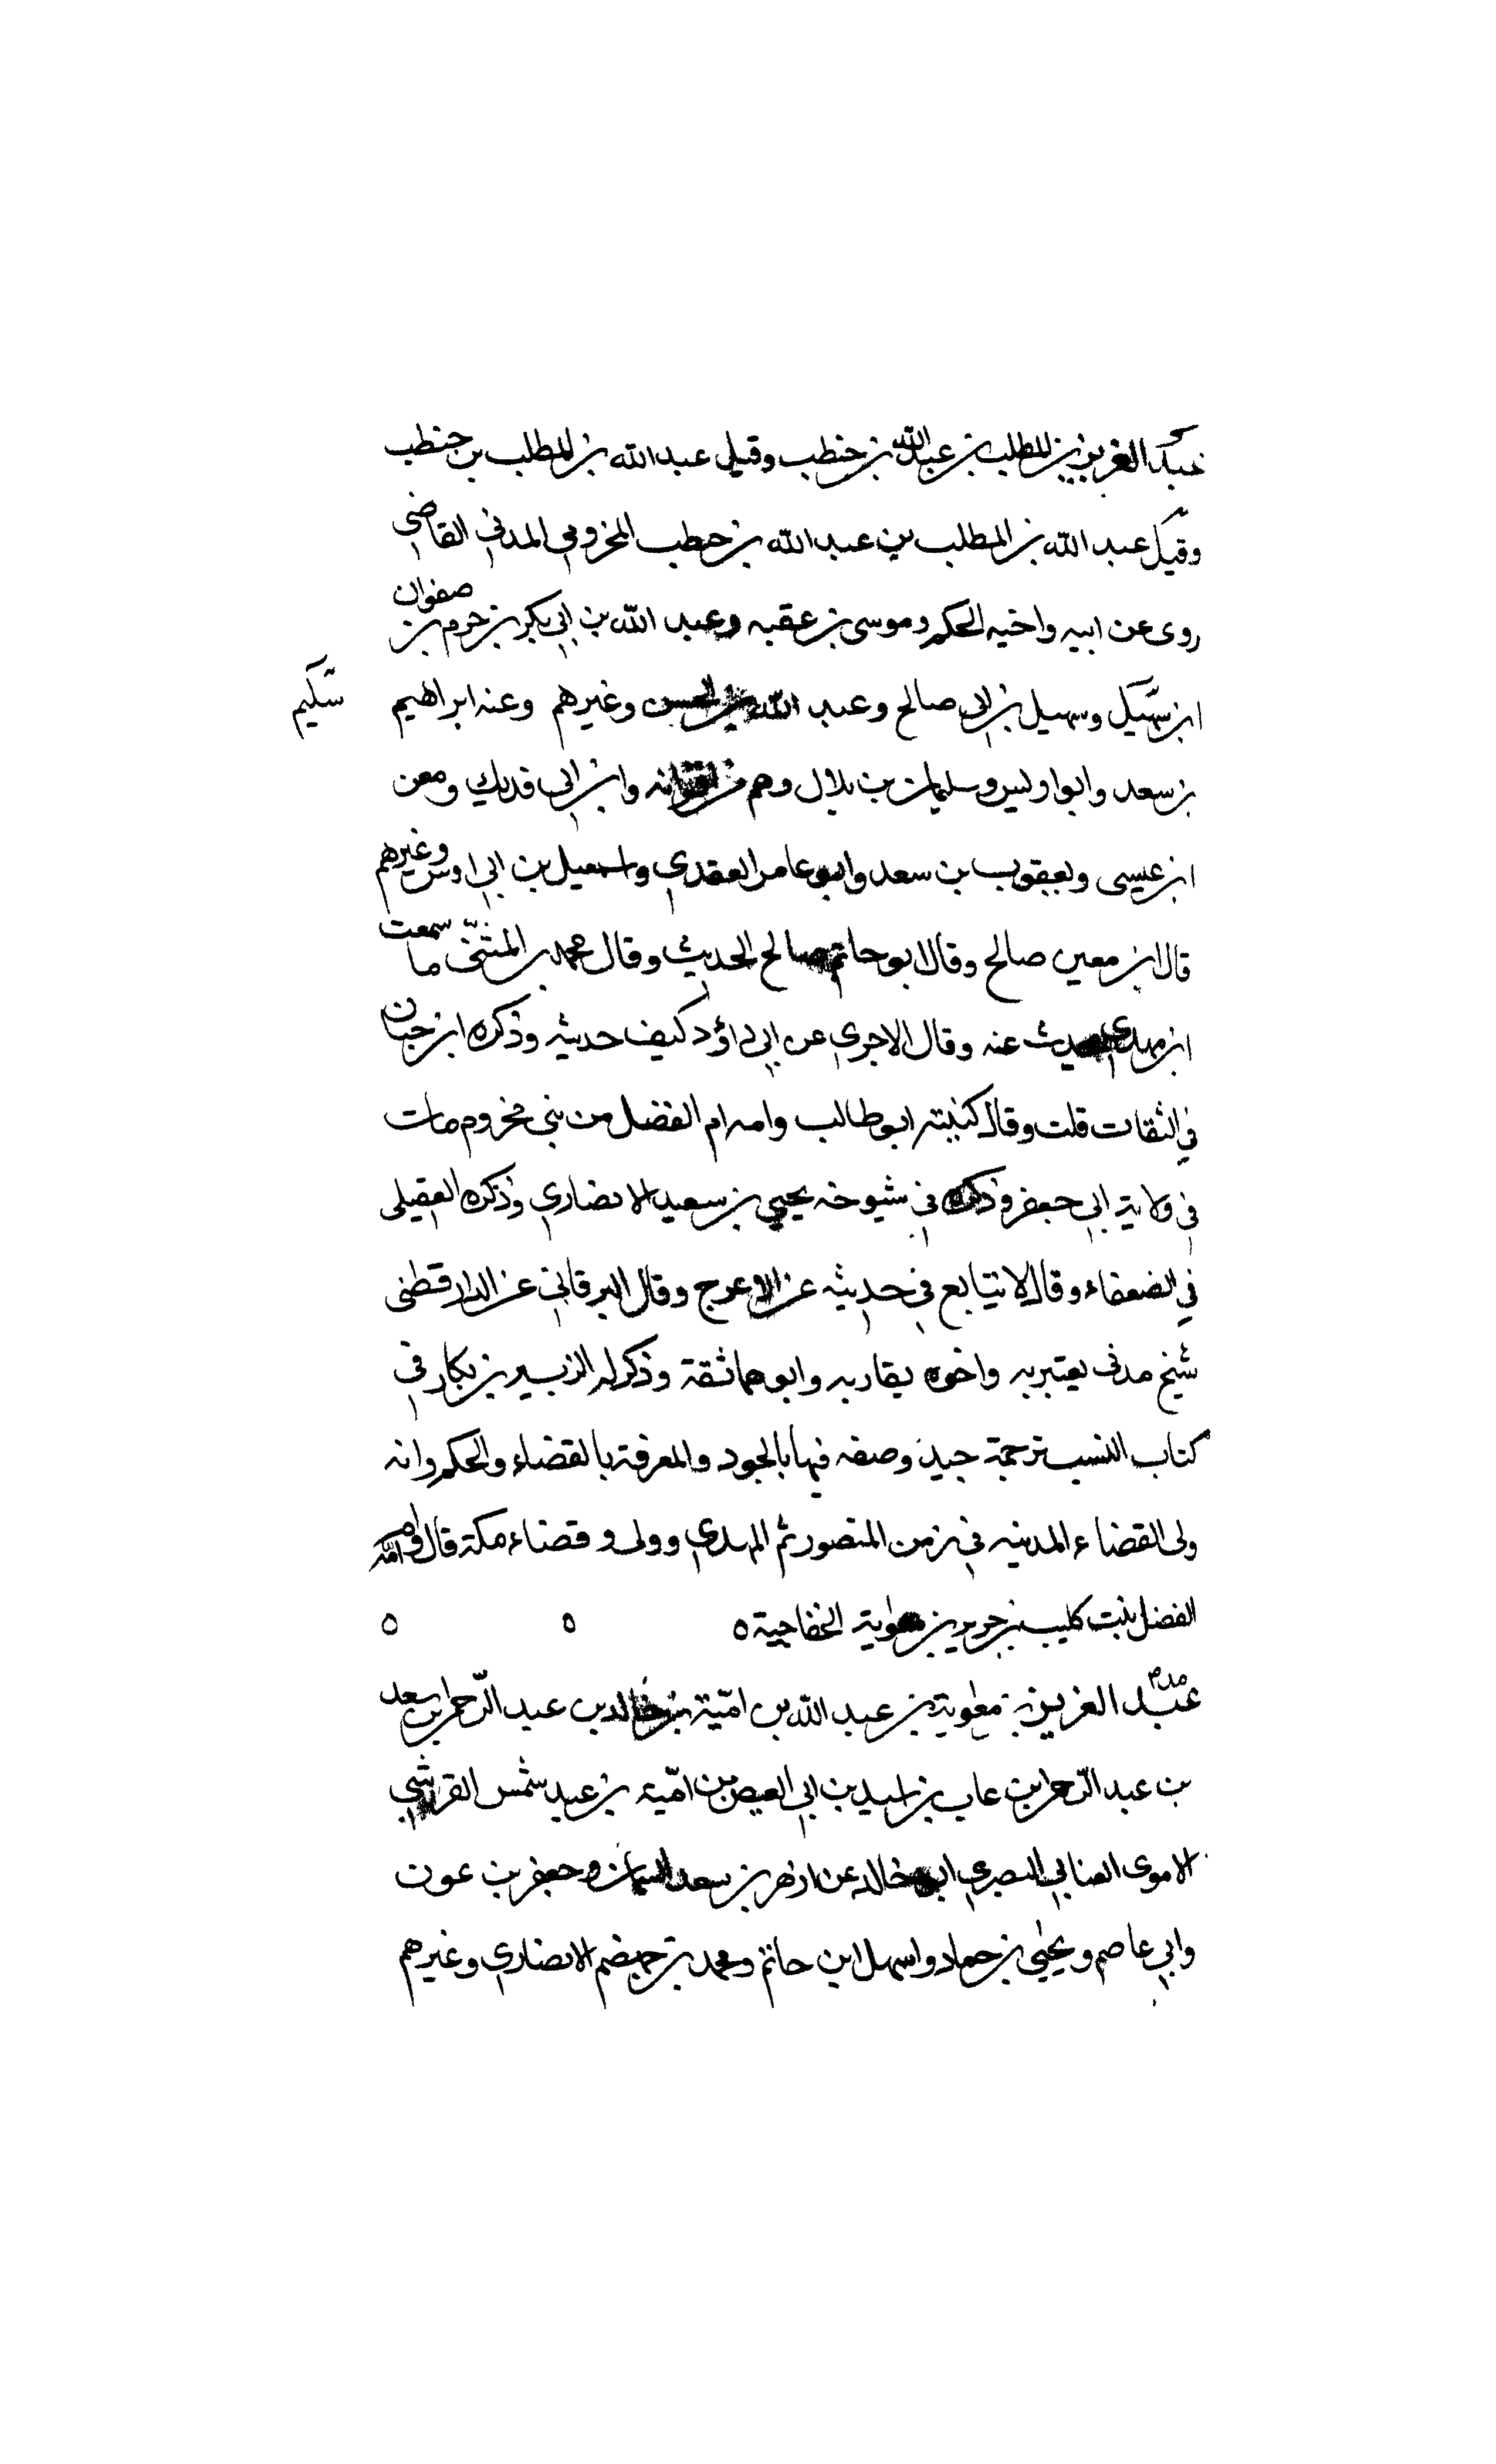 عبد العزيز بن المطلب بن عبد الله بن حنطب وقيل عبد الله بن المطلب بن حنطب
وقيل عبد الله بن المطلب بن عبد الله بن حطب المخزومي المدني القاضي
روى عن ابيه واخيه الحكم وموسى بن عقبه وعبد الله بن ابي بكر بن حزم بن صفوان
ابن سهيل وسهيل بن ابي صالح وعبد الله بن الحسن وغيرهم وعنه ابراهيم
سليم
بن سعد وابو اويس وسليمان بن بلال وهم من اقرانه وابن ابي فديك ومعن
ابن عيسى ويعقوب بن سعد وابو عامر العقدي واسمعيل بن ابي اوس وغيرهم
قال ابن معين صالح وقال ابو حاتم صالح الحديث وقال محمد بن المثنى ما سمعت
ابن مهدي يحدث عنه وقال الاجري عن ابي داؤد كيف حديثه وذكره ابن حبان
في الثقات قلت وقال كنيته ابو طالب وامه ام الفضل من بني مخزوم مات
في ولاية ابي جعفر وذكر في شيوخه يحيى بن سعيد الانصاري وذكره العقيلي
في الضعفاء وقال لا يتابع في حديثه عن الاعرج وقال البرقاني عن الدارقطني
شيخ مدني يعتبر به واخوه يقاربه وابوهما ثقة وذكر له الزبير بن بكار في
كتاب النسب ترجمة جيدة وصفه فيها بالجود والمعرفة بالقضاء والحكم وانه
ولى القضاء المدينه في زمن المنصور ثم المهدي وولى و قضاء مكة قال وامه ام
الفضل بنت كليب بن جرير بن معاوية الخفاجية ٥ ٥ ٥
عبد العزيز بن معاوية بن عبد الله بن امية بن خالد بن عبد الرحمن بن سعد
بن عبد الرحمن بن عاب بن اسيد بن ابي العيص بن امية بن عبد شمس القرشي
الاموى العتابي البصري ابو خالد عن ازهر بن سعد السمان وجعفر بن عون
وابي عاصم ويحيى بن حماد واسهل ابن حاتم ومحمد بن جهضم الانصاري وغيرهم